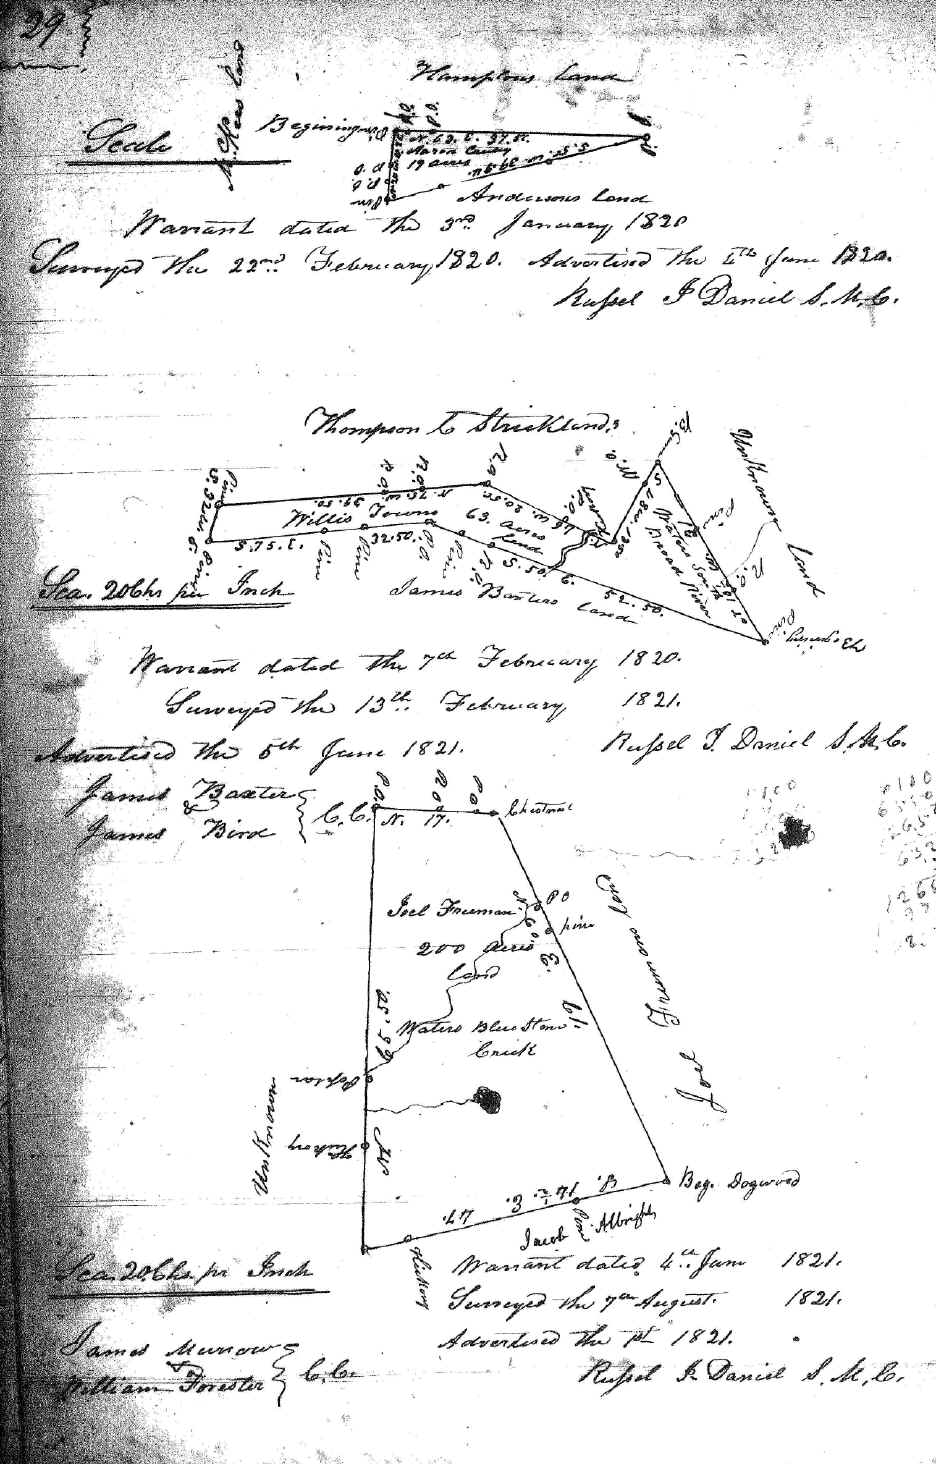 29
Hamptons Land
McKees Land
Begining
Scale
N. 63. E. 37.
19 acres
Andersons Land
P.O.
P.O.
Pin
Warrant dated the 3rd January, 1820
Surveyed the 22nd February, 1820. Advertised the 4th June 1820.
Russel J Daniel S.M.C.
Thompson & Stricklands
Unknown Land
Willis Towns
63. acres
Land
S. 32 W. 6.
Pine
S. 75. E.
32.50.
Pine
Pine
P.O
Pine
R.O.
S. 50. E.
52.50.
James Baxters Land
Waters South
Broad River
Pine
R.O.
Pine
Begining
Sca. 20 Chs per Inch
Warrant dated the 7th February 1820.
Surveyed the 13th February 1821.
Advertised the 5th June 1821.
Russel J. Daniel S.M.C.
James Baxter
&
James Bird
C.C.
P.O
R.O
P.O
Chestnut
N. 17.
Joel Freeman
200 acres
Land
N. 60. E.
P O
pine
61.
Joel Freemans
Waters Blue Stone
Creek
Poplar
Hickory
UnKnown
Beg. Dogwood
47.
Pine
Jacob Albright
Hickory
Sca. 20. Chs. pr Inch
Warrant dated 4th June 1821.
Surveyed the 7th August. 1821.
Advertised the 1st 1821.
Russel J. Daniel S.M.C.
James Murrow
&
William Forester
C.C.